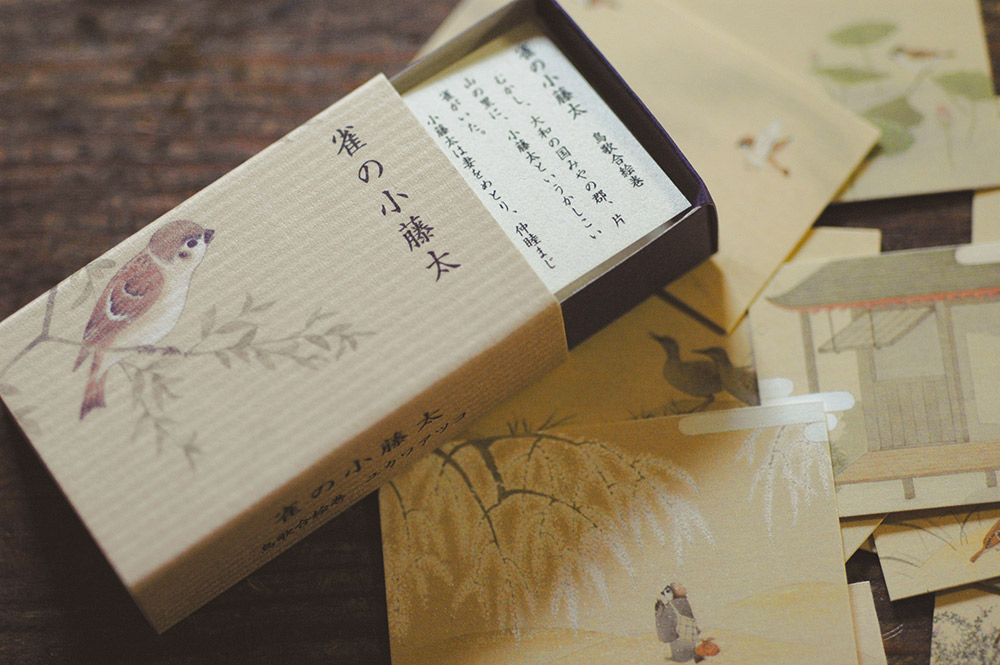 雀の小藤太
雀の小藤太
鳥歌合絵巻
むかし、大和の国みやの郡、片
山の里に、小藤太というかしこい
雀がいた。
小藤太は妻をめとり、仲睦まじ
雀の小藤太
鳥歌合絵巻